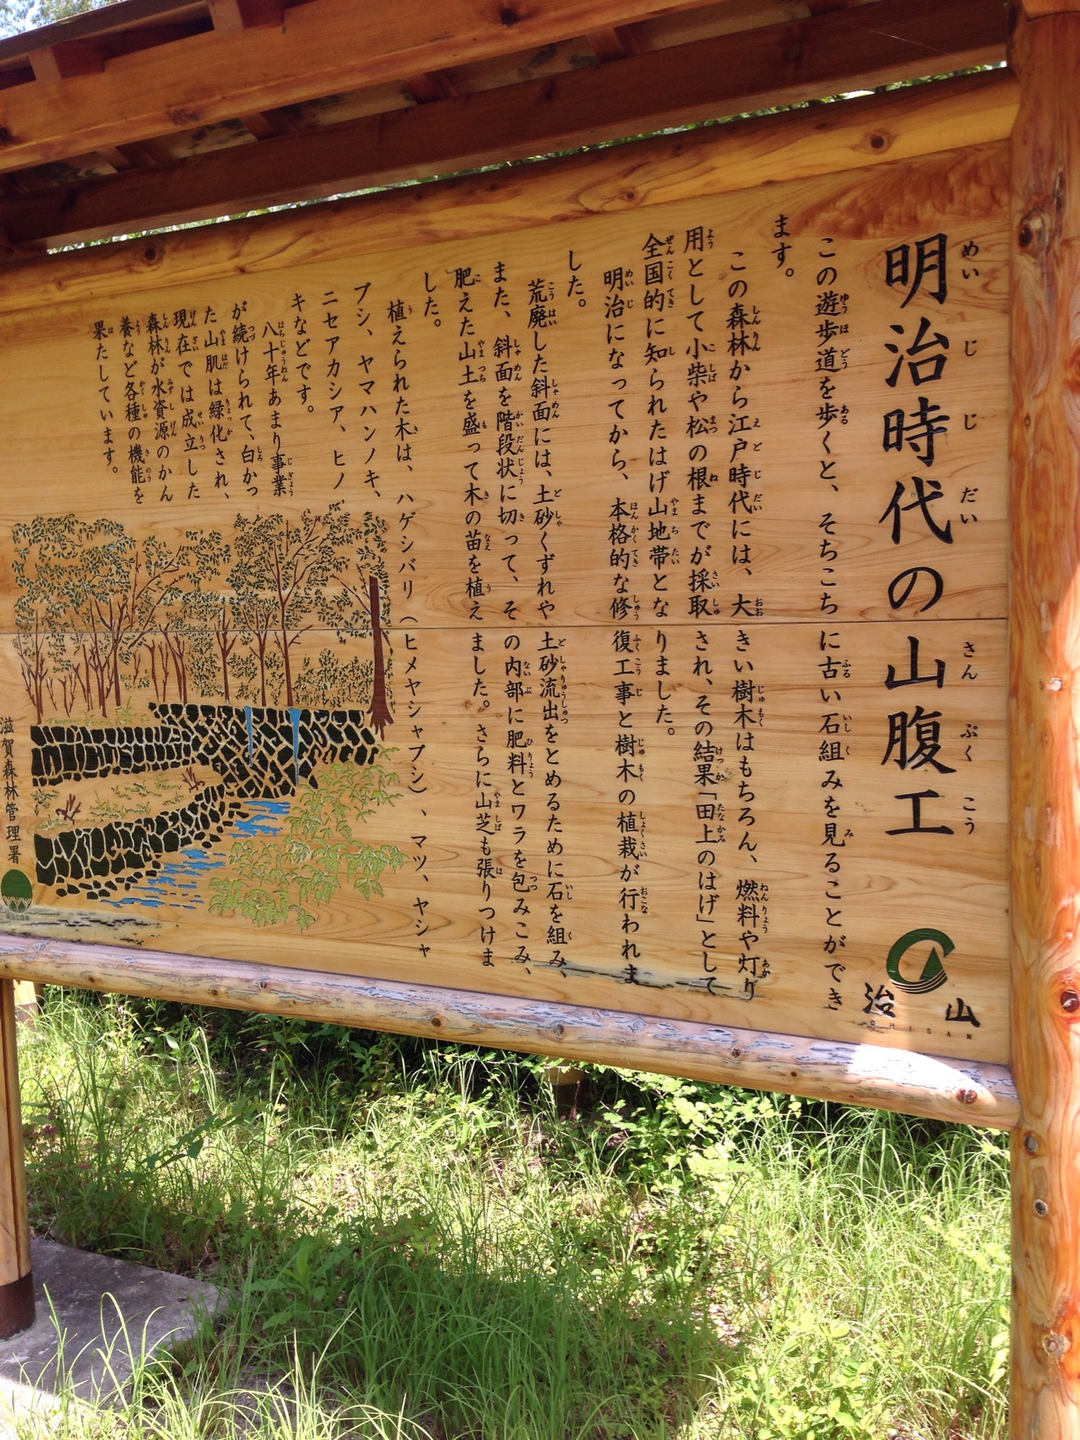 明治時代の山腹工
この遊歩道を歩くと、そちこちに古い石組みを見ることができ
ます。
この森林から江戸時代には、大きい樹木はもちろん、燃料や灯り
用として小柴や松の根までが採取され、その結果「田上のはげ」として
全国的に知られたはげ山地帯となりました。
明治になってから、本格的な修復工事と樹木の植栽が行われま
した。
荒廃した斜面には、土砂くずれや土砂流出をとめるために石を組み、
また、斜面を階段状に切って、その内部に肥料とワラを包みこみ、
肥えた山土を盛って木の苗を植えました。さらに山芝も張りつけま
した。
植えられた木は、ハゲシバリ（ヒメヤシャブシ）、マツ、ヤシャ
ブシ、ヤマハンノキ、
ニセアカシア、ヒノ
キなどです。
八十年あまり事業
が続けられて、白かっ
た山肌は緑化され、
現在では成立した
森林が水資源のかん
養など各種の機能を
果たしています。
滋賀森林管理署
治山
CHISAN